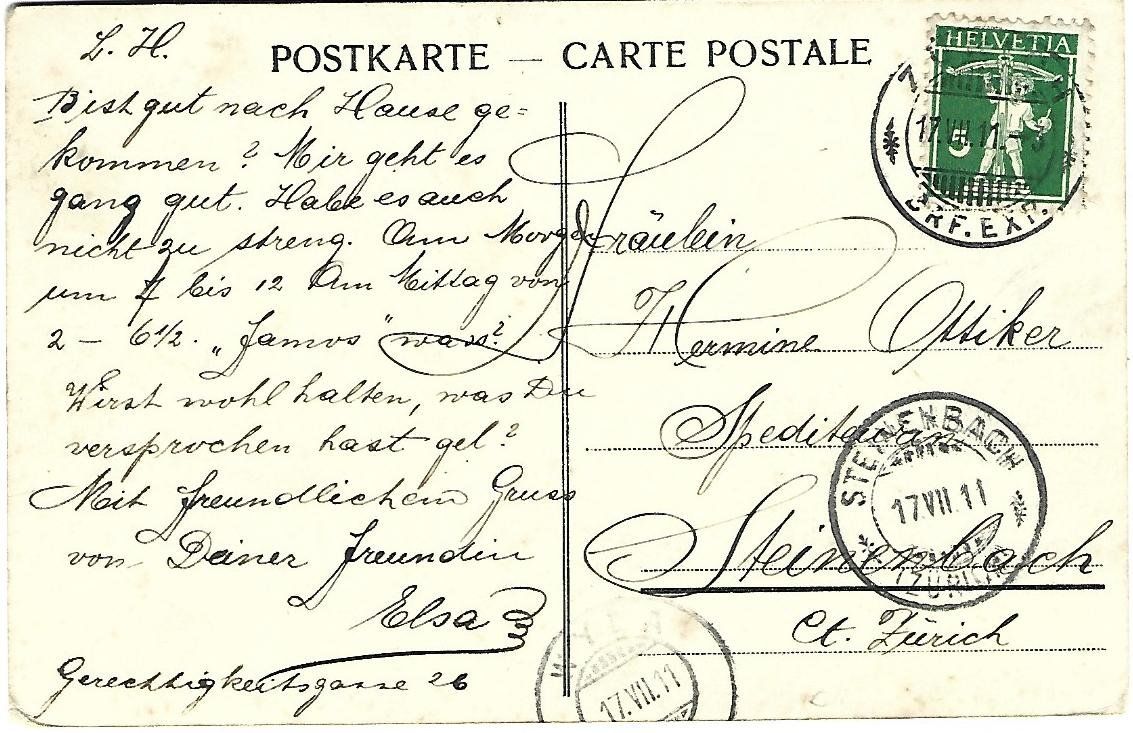 L. H.
POSTKARTE — CARTE POSTALE
Bist gut nach Hause ge=
kommen? Mir geht es
ganz gut. Habe es auch
nicht zu streng. Am Morgen
um 7 bis 12 Am Mittag von
2 – 6 1/2. „Famos" was?
Wirst wohl halten, was Du
versprochen hast gel?
Mit freundlichem Gruss
von Deiner Freundin
Elsa
Gerechtigkeitsgasse 26
HELVETIA
5
17.VII.11.–3
BRF. EXP.
Fräulein
Hermine Ottiker
Steinenbach
Ct. Zürich
STEINENBACH
17.VII.11
(ZÜRICH)
WYLEN
17.VII.11